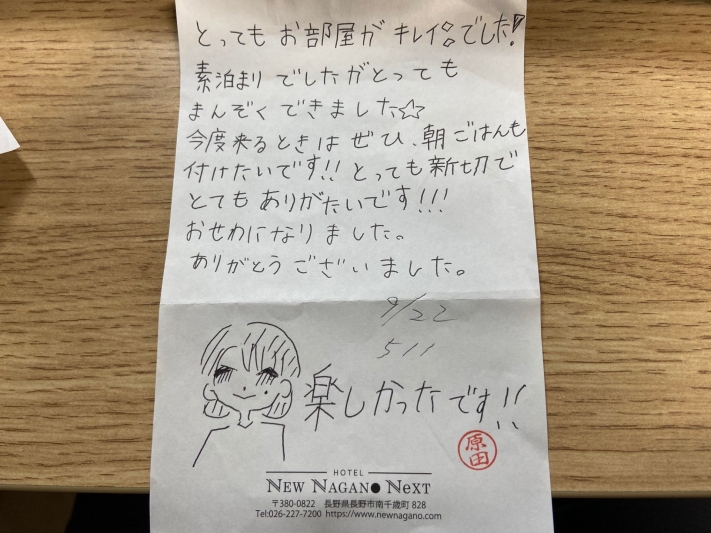 とってもお部屋がキレイでした!
素泊まりでしたがとっても
まんぞくできました☆
今度来るときはぜひ、朝ごはんも
付けたいです!! とっても新切で
とてもありがたいです!!!
おせわになりました。
ありがとうございました。
9/22
511
楽しかったです!!
原田
HOTEL
NEW NAGANO NEXT
〒380-0822 長野県長野市南千歳町 828
Tel:026-227-7200 https://www.newnagano.com